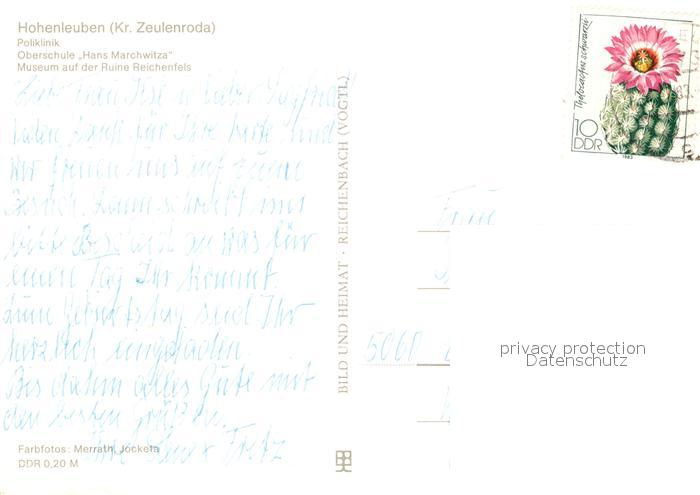 Hohenleuben (Kr. Zeulenroda)
Poliklinik
Oberschule „Hans Marchwitza"
Museum auf der Ruine Reichenfels
Liebe Frau Ilse u. lieber
Dank für Ihre Karte und
wir freuen uns auf Eueren
Besuch. Dann schreibt uns
bitte Bescheid an was für
einen Tag Ihr kommt.
Zum Geburtstag seid Ihr
herzlich eingeladen.
Bis dahin alles Gute mit
den besten Grüßen
Fritz
Farbfotos: Merrath, Jocketa
DDR 0,20 M
BILD UND HEIMAT · REICHENBACH (VOGTL)
Thelocactus schwarzii
10
DDR
1983
Frau
5060
privacy protection
Datenschutz